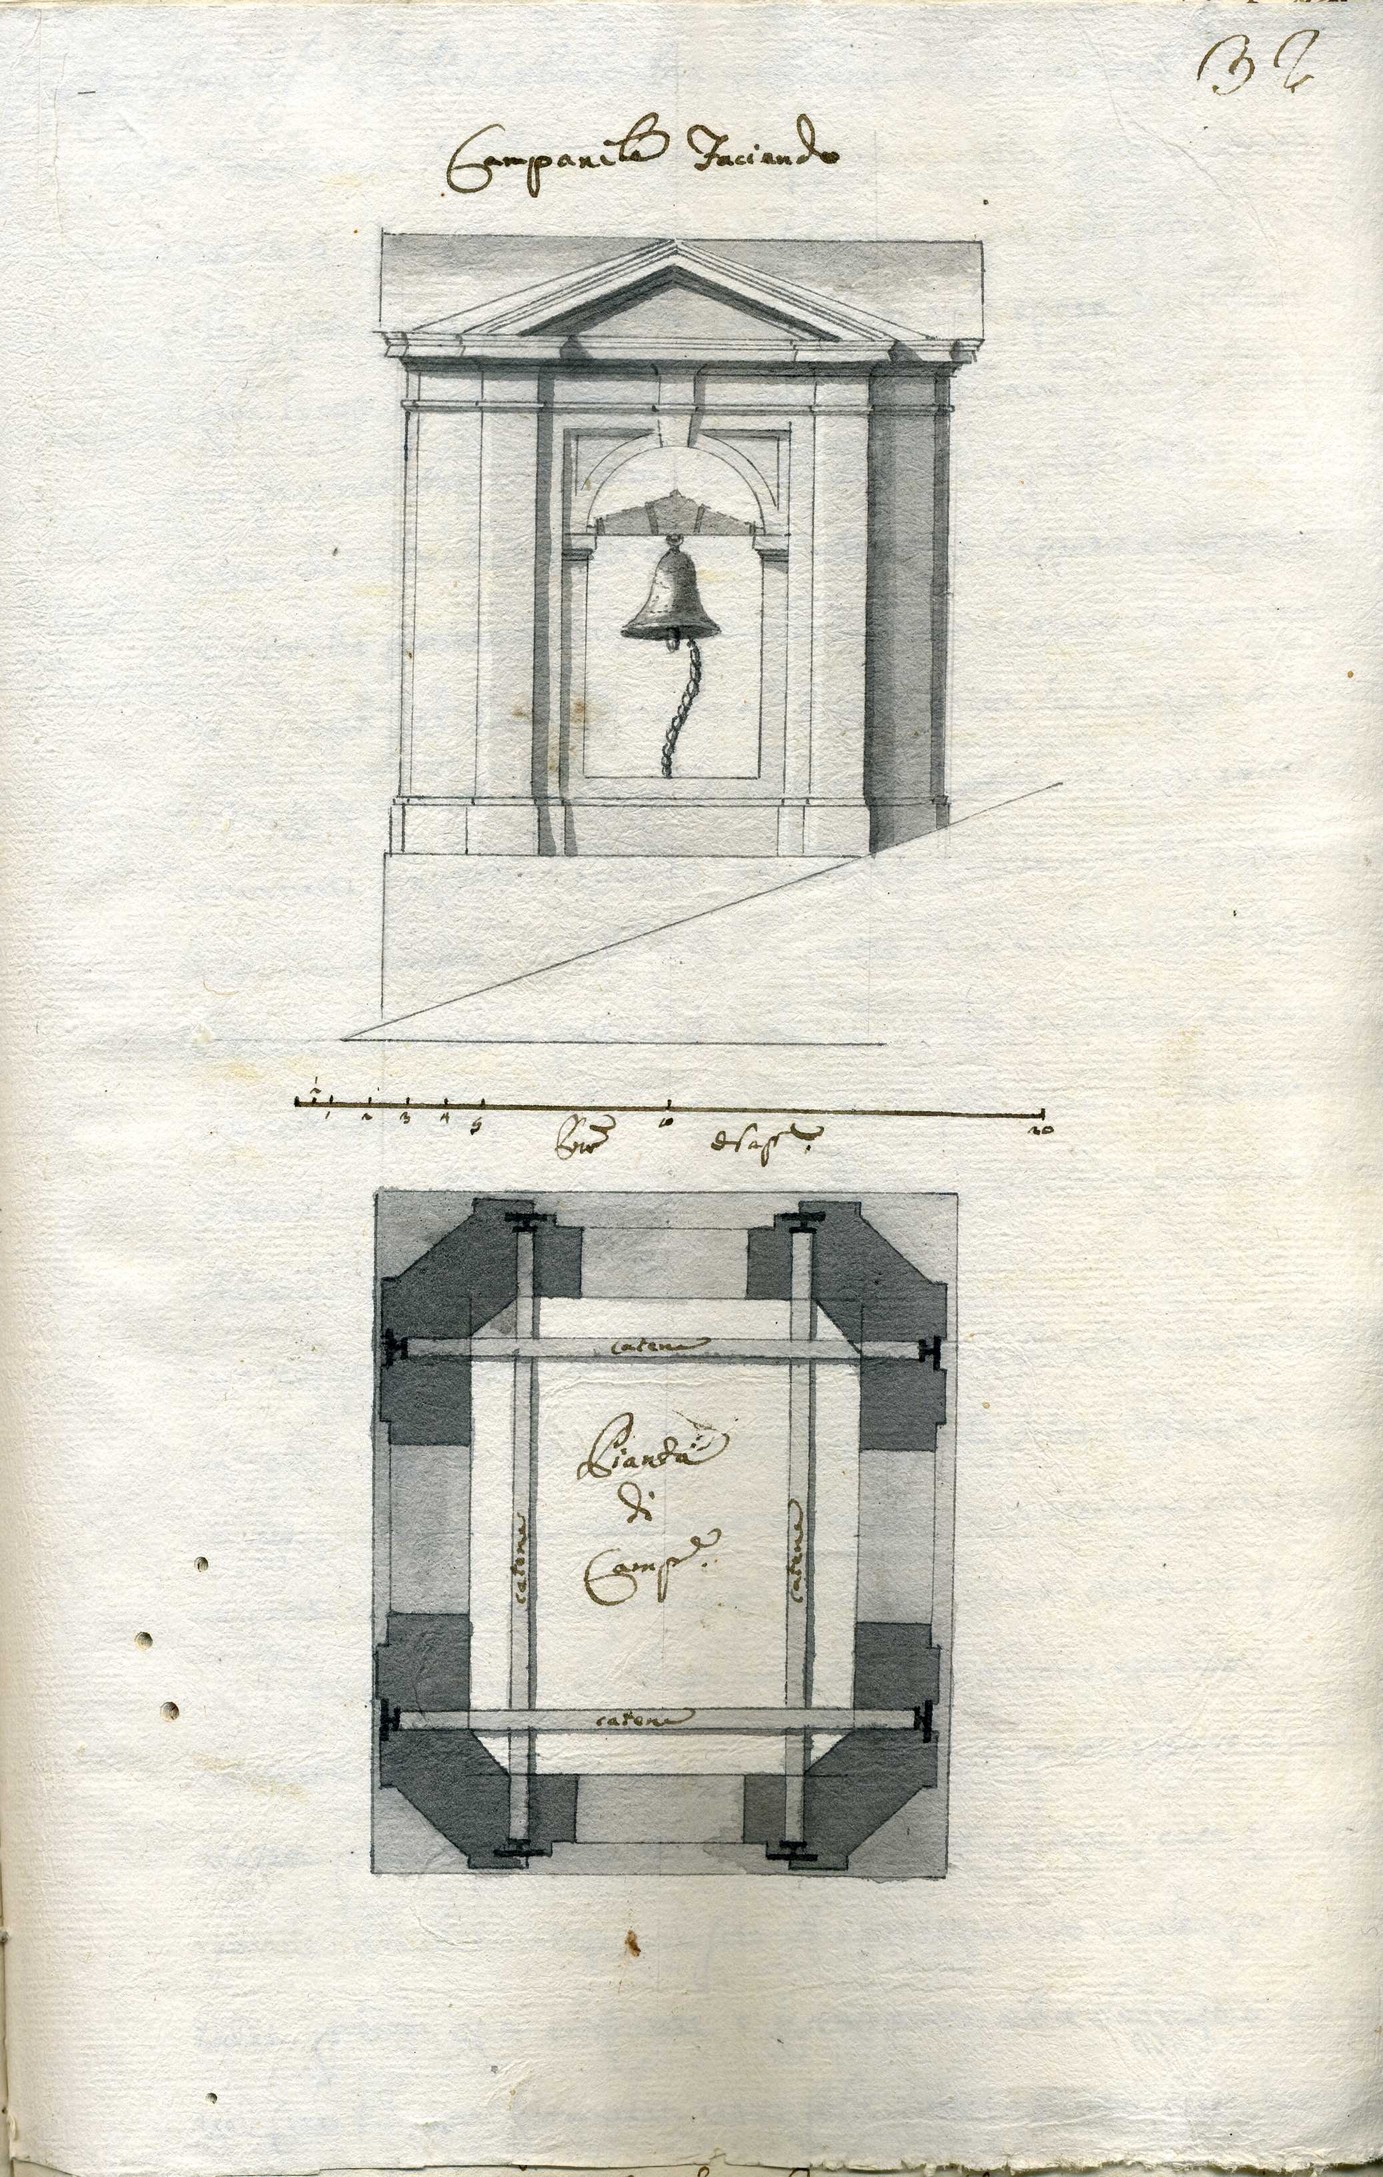 32
Campanile Faciendo
1 2 3 4 5 10 20
catene
Pianta
di
Camp.e
catene
catene
catene